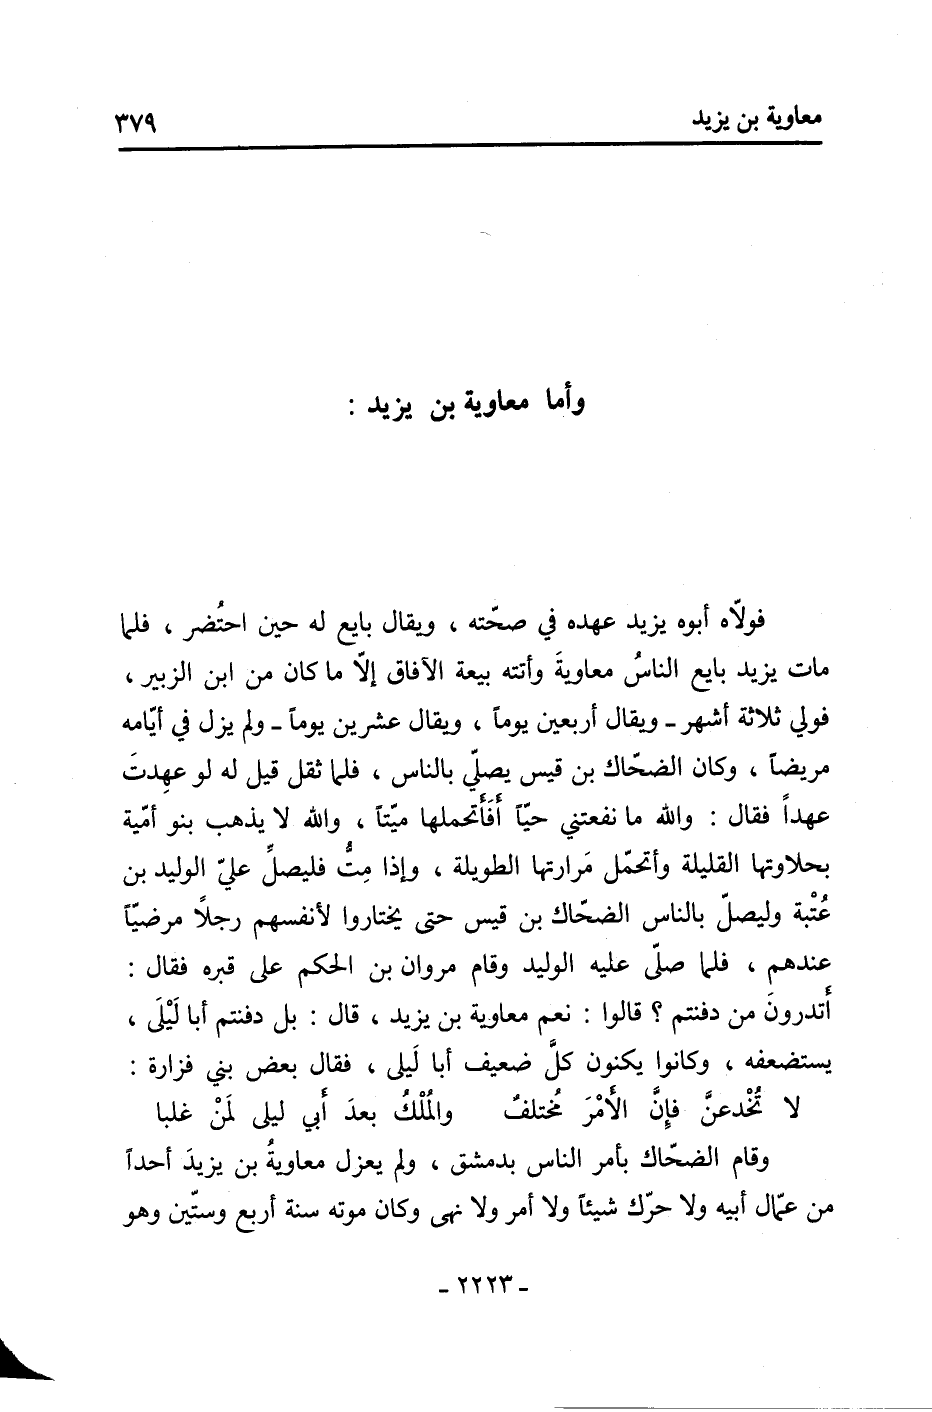 معاوية بن يزيد
٣٧٩
وأما معاوية بن يزيد :
فولّاه أبوه يزيد عهده في صحّته ، ويقال بايع له حين احتُضر ، فلما
مات يزيد بايع الناسُ معاويةَ وأتته بيعة الآفاق إلّا ما كان من ابن الزبير ،
فولي ثلاثة أشهر ـ ويقال أربعين يوماً ، ويقال عشرين يوماً ـ ولم يزل في أيّامه
مريضاً ، وكان الضحّاك بن قيس يصلّي بالناس ، فلما ثقل قيل له لو عهِدتَ
عهداً فقال : والله ما نفعتني حيّاً أَفَأَتحملها ميّتاً ، والله لا يذهب بنو أمّية
بحلاوتها القليلة وأتحمّل مَرارتها الطويلة ، وإذا مِتُّ فليصلِّ عليّ الوليد بن
عُتْبة وليصلّ بالناس الضحّاك بن قيس حتى يختاروا لأنفسهم رجلاً مرضيّاً
عندهم ، فلما صلّى عليه الوليد وقام مروان بن الحكم على قبره فقال :
أَتدرونَ من دفنتم ؟ قالوا : نعم معاوية بن يزيد ، قال : بل دفنتم أبا لَيْلَى ،
يستضعفه ، وكانوا يكنون كلَّ ضعيف أبا لَيلى ، فقال بعض بني فزارة :
لا تُخْدعنَّ فإِنَّ الأَمْرَ مُختلفٌ والمُلْكُ بعدَ أَبي ليلى لمَنْ غلبا
وقام الضحّاك بأمر الناس بدمشق ، ولم يعزل معاويةُ بن يزيدَ أحداً
من عمّال أبيه ولا حرّك شيئاً ولا أمر ولا نهى وكان موته سنة أربع وستّين وهو
ـ ٢٢٢٣ ـ